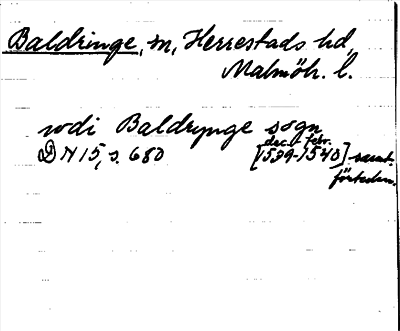 Baldringe, sn, Herrestads hd,
Malmöh. l.
wdi Baldrynge sogn
dec. febr.
DN 15, s. 680 [1539-1540] samt.
förteckn.